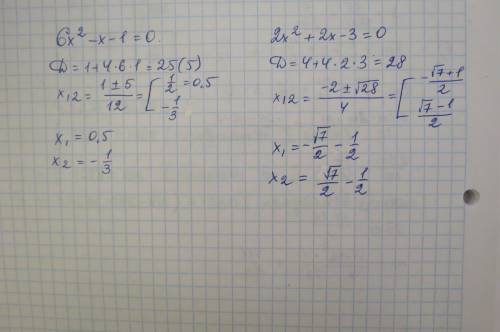 6x² - x - 1 = 0.
D = 1 + 4·6·1 = 25 (5)
x₁,₂ = (1 ± 5)/12 = [ 1/2 = 0.5
-1/3
x₁ = 0,5
x₂ = - 1/3
2x² + 2x - 3 = 0
D = 4 + 4·2·3 = 28
x₁,₂ = (-2 ± √28)/4 = [ -(√7+1)/2
(√7-1)/2
x₁ = - √7/2 - 1/2
x₂ = √7/2 - 1/2